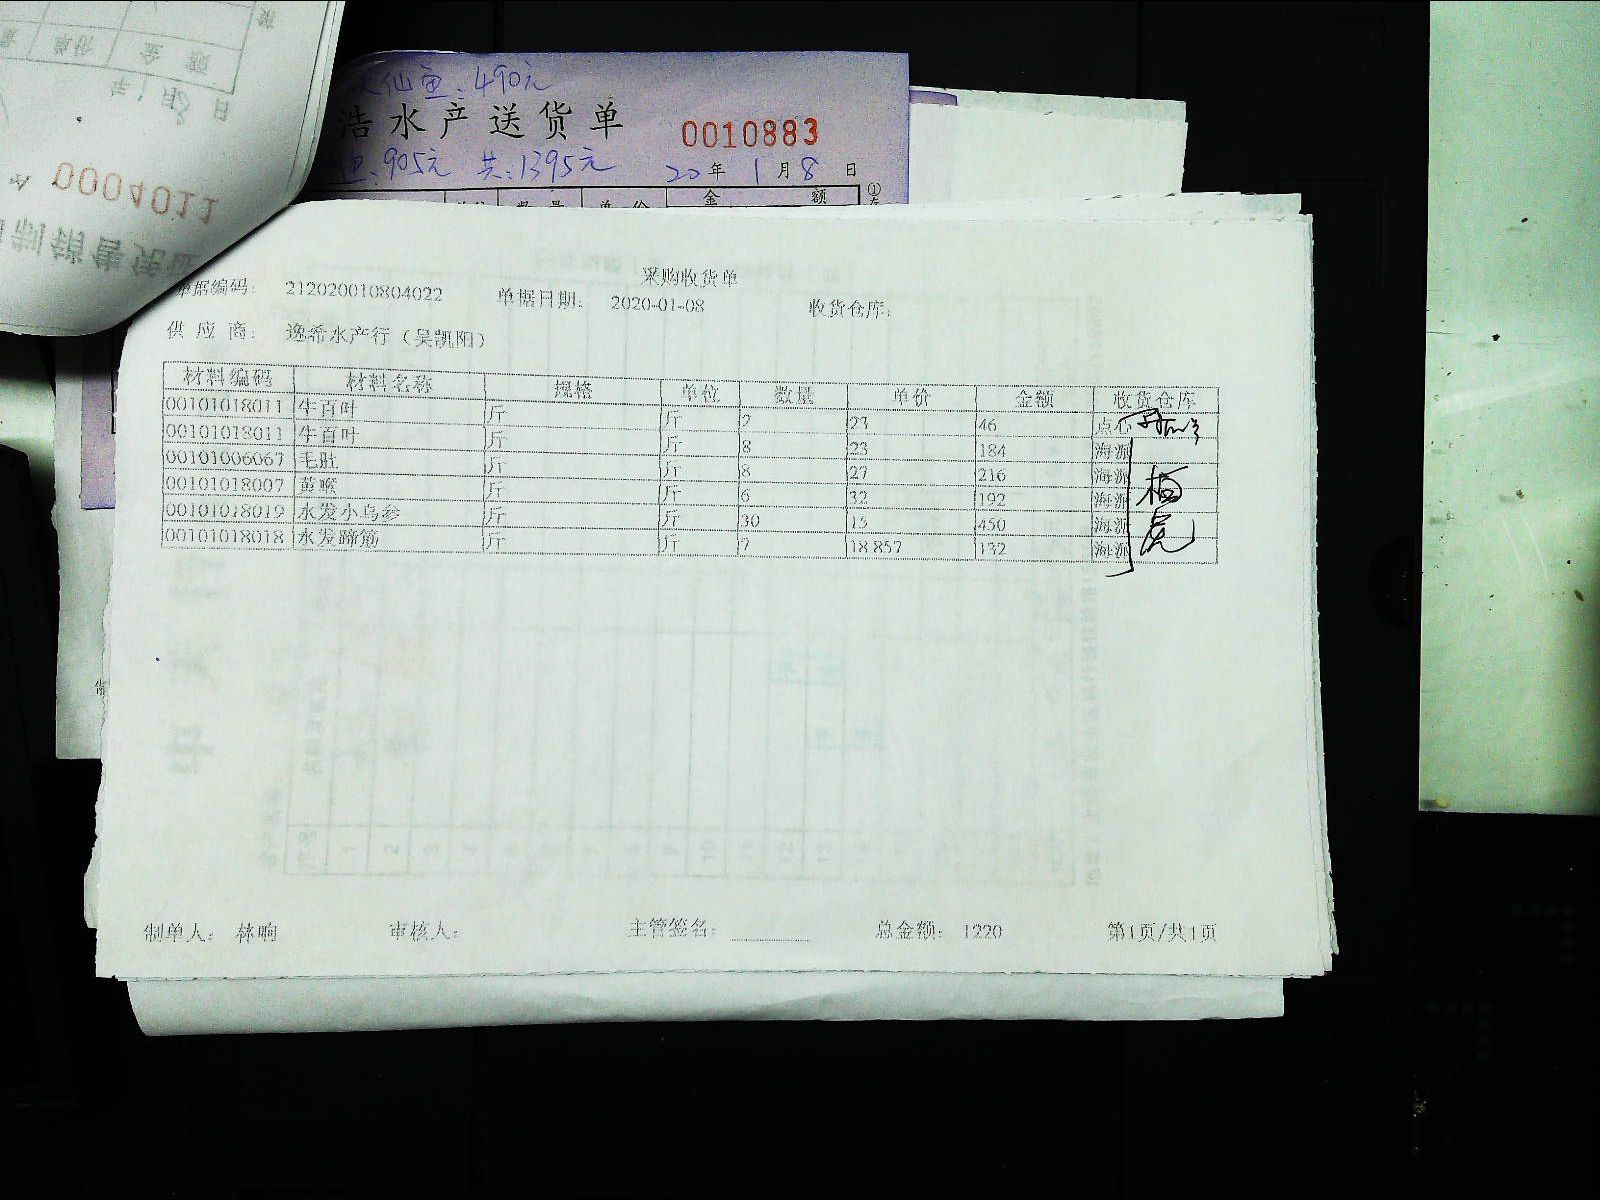 仙鱼:490元
浩水产送货单 0010883
905元 共:1395元 20年1月8日
数量 单价 金额
0004011
采购收货单
单据编码: 212020010804022 单据日期: 2020-01-08 收货仓库:
供应商: 逸希水产行(吴凯阳)
材料编码 材料名称 规格 单位 数量 单价 金额 收货仓库
00101018011 牛百叶 斤 斤 2 23 46 点心
00101018011 牛百叶 斤 斤 8 23 184 海派
00101006067 毛肚 斤 斤 8 27 216 海派
00101018007 黄喉 斤 斤 6 32 192 海派
00101018019 水发小乌参 斤 斤 30 15 450 海派
00101018018 水发蹄筋 斤 斤 7 18.857 132 海派
制单人: 林响 审核人: 主管签名: 总金额: 1220 第1页/共1页